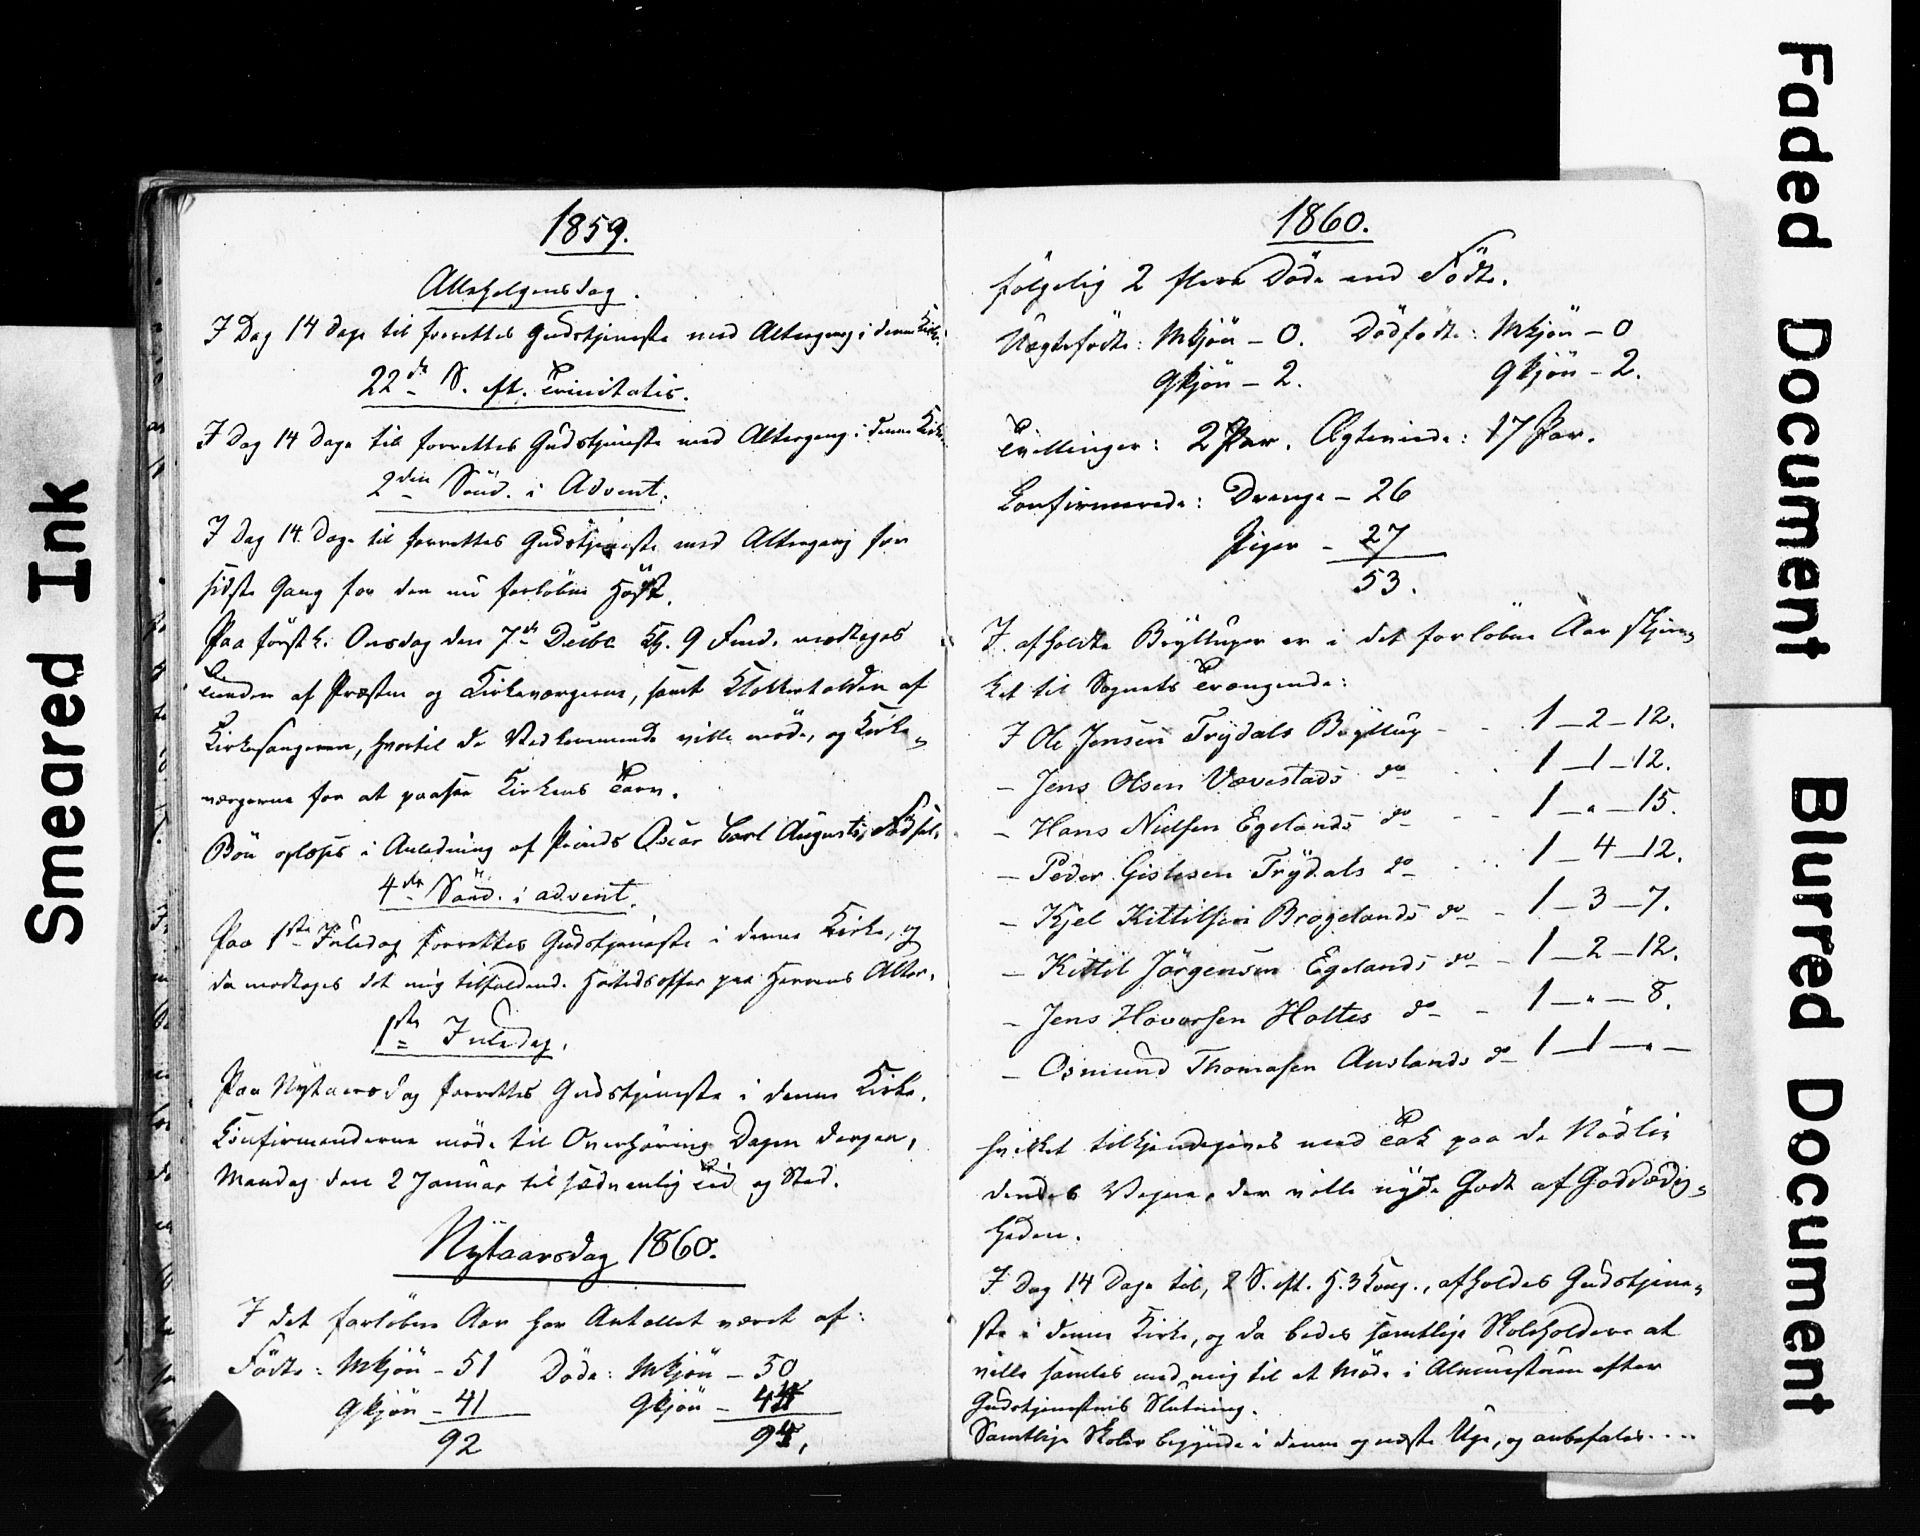 Smeared Ink
1859.
Allehelgensdag.
I Dag 14 Dage til forrettes Gudstjeneste med Altergang i denne Kirke.
22de S. eft. Trinitatis.
I Dag 14 Dage til forrettes Gudstjeneste med Altergang i denne Kirke
2den Sönd. i Advent.
I Dag 14 Dage til forrettes Gudstjeneste med Altergang for
sidste Gang for den nu forløbne Höst.
Paa förstk. Onsdag den 7de Decbr. Kl. 9 Fmd. modtages
Tienden af Præsten og Kirkeværgerne, samt Klokkertolden af
Kirkesangeren, hvortil de Vedkommende ville möde, og Kirke=
værgerne for at paasee Kirkens Tarv.
Bön oplæses i Anledning af Prinds Oscar Carl Augusts Födsel.
4de Sönd. i advent.
Paa 1ste Juledag forrettes Gudstjeneste i denne Kirke, og
da modtages det mig tilfaldend. Höitidsoffer paa Herrens Alter.
1ste Juledag.
Paa Nytaarsdag forrettes Gudstjeneste i denne Kirke.
Confirmanderne möde til Overhöring Dagen derpaa,
Mandag den 2 Januar til sædvanlig Tid og Sted.
Nytaarsdag 1860.
I det forløbne Aar har Antallet været af:
Födte: Mkjön - 51 Döde: Mkjön - 50
Qkjön - 41 Qkjön - 44
92 94.
1860.
fölgelig 2 flere Döde end Födte.
Uægtefödte: Mkjön - 0. Dödfödte: Mkjön - 0
Qkjön - 2. Qkjön - 2.
Tvillinger: 2 Par. Ægteviede: 17 Par.
Confirmerede: Drenge - 26
Piger - 27
53.
I afholdte Bryllupper er i det forløbne Aar skjæn=
ket til Sognets Trængende:
I Ole Jensen Trydals Bryllup - - 1 - 2 - 12.
- Jens Olsen Vævestads do - - 1 - 1 - 12.
- Hans Nielsen Egelands do - - 1 - " - 15.
- Peder Gislesen Trydals do - - 1 - 4 - 12.
- Kjel Kittilsen Brögelands do - 1 - 3 - 7.
- Kittil Jörgensen Egelands do - 1 - 2 - 12.
- Jens Havorsen Holtes do - - 1 - " - 8.
- Osmund Thomasen Auslands do 1 - 1 - " -
hvilket tilkjendegives med Tak paa de Nödli=
dendes Vegne, der ville nyde Godt af Goddædig=
heden.
I Dag 14 Dage til, 2 S. eft. H. 3 Kong., afholdes Gudstjene=
ste i denne Kirke, og da bedes samtlige Skoleholdere at
ville samles med mig til et Möde i Almuestuen efter
Gudstjenestens Slutning.
Samtlige Skoler begynde i denne og næste Uge, og anbefales....
Faded Document
Blurred Document